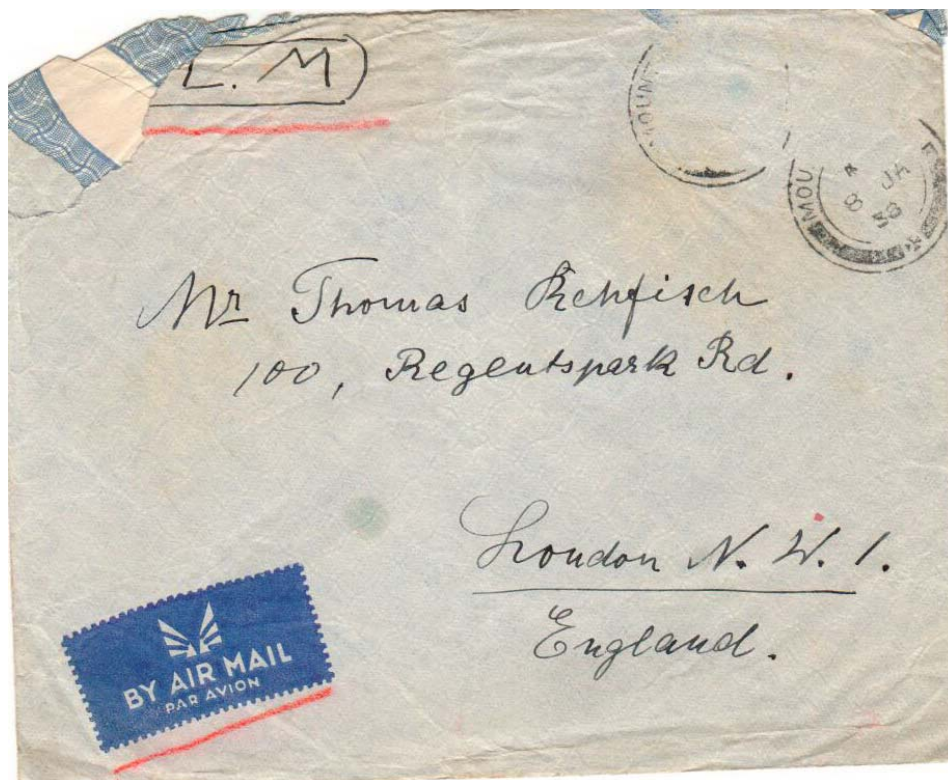 L. M
MOUN
MOU
8 JA
38
Mr Thomas Rehfisch
100, Regentspark Rd.
London N. W. 1.
England.
BY AIR MAIL
PAR AVION